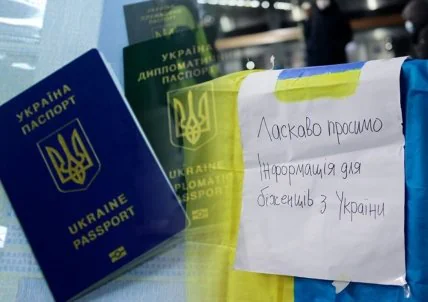 УКРАЇНА
ПАСПОРТ
UKRAINE
PASSPORT
УКРАЇНА
ДИПЛОМАТИЧНИЙ
ПАСПОРТ
UKRAINE
DIPLOMATIC
PASSPORT
Ласкаво просимо
Інформація для
біженців з України